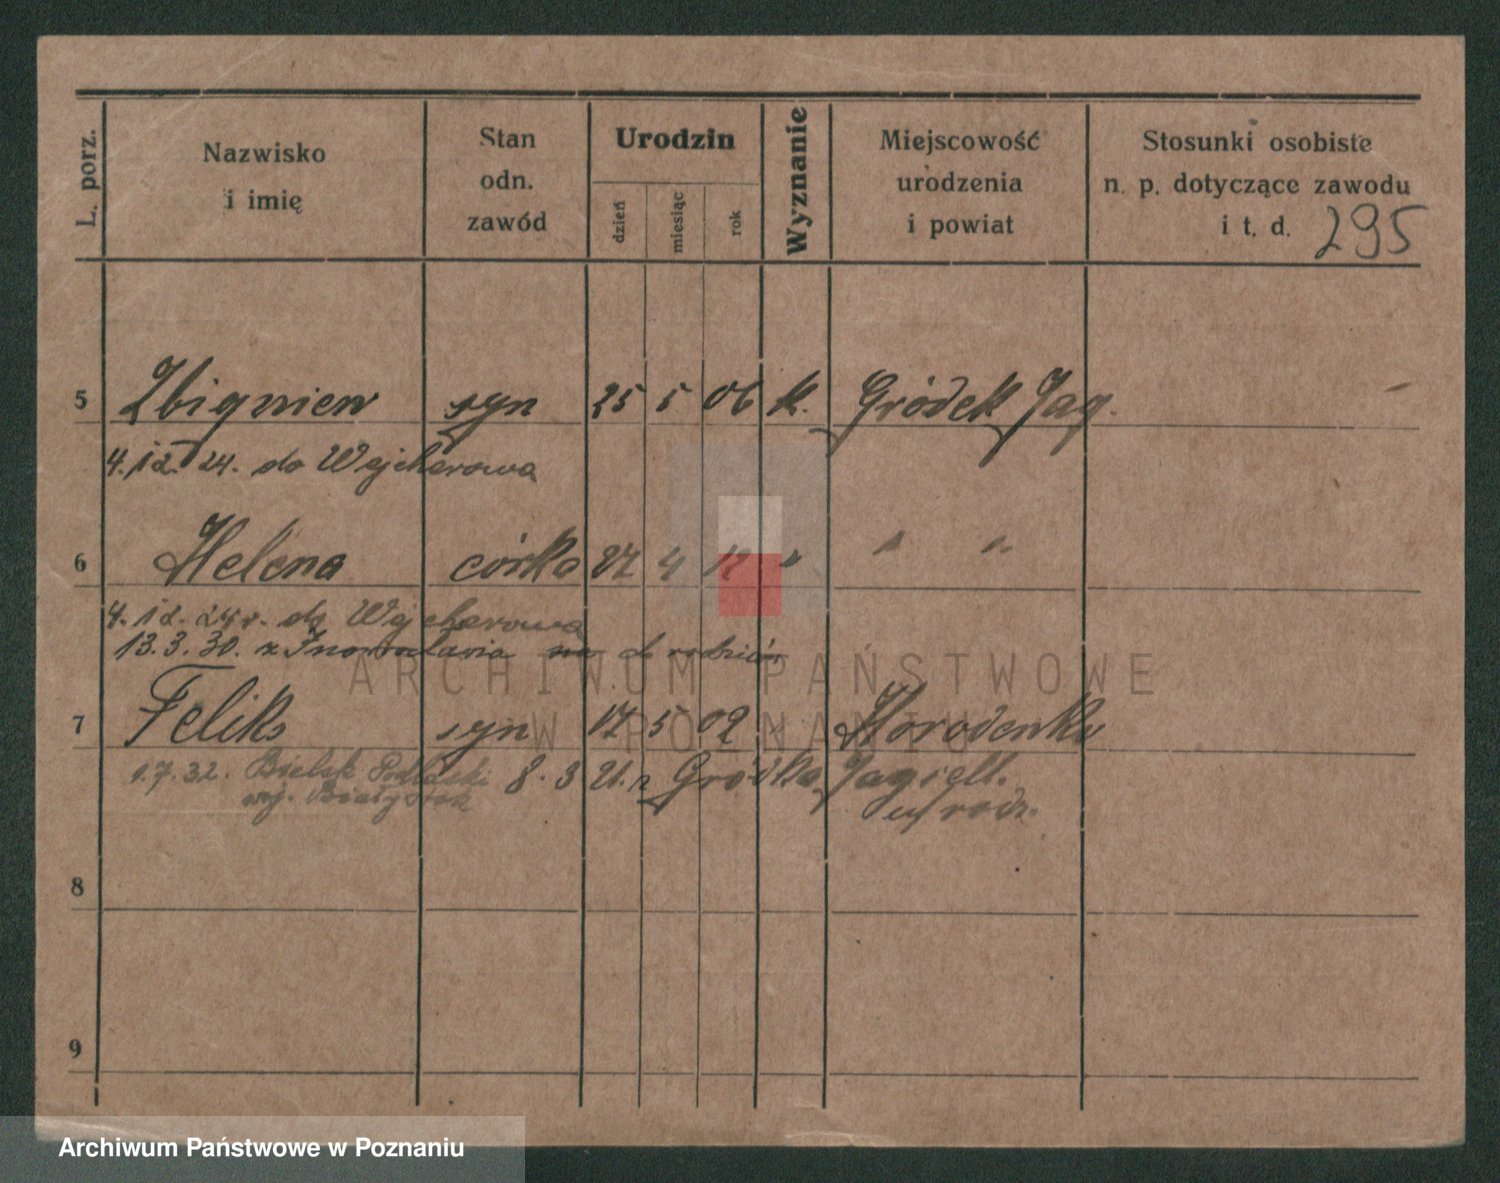 L. porz.
Nazwisko i imię
Stan odn. zawód
Urodzin
dzień miesiąc rok
Wyznanie
Miejscowość urodzenia i powiat
Stosunki osobiste n. p. dotyczące zawodu i t. d.
295
5 Zbigniew syn 25 5 06 k. Gródek Jag.
4.12.24. do Wejherowa
6 Helena córka 27 4 12 " " "
4.12.24r. do Wejherowa
13.3.30. z Inowrocławia do rodziców
7 Feliks syn 17 5 09 Horodenka
1.7.32. Bielsk Podlaski 8.3 21. z Gródka Jagiell.
woj. Białystok u/ rodz.
8
9
ARCHIWUM PAŃSTWOWE
W POZNANIU
Archiwum Państwowe w Poznaniu